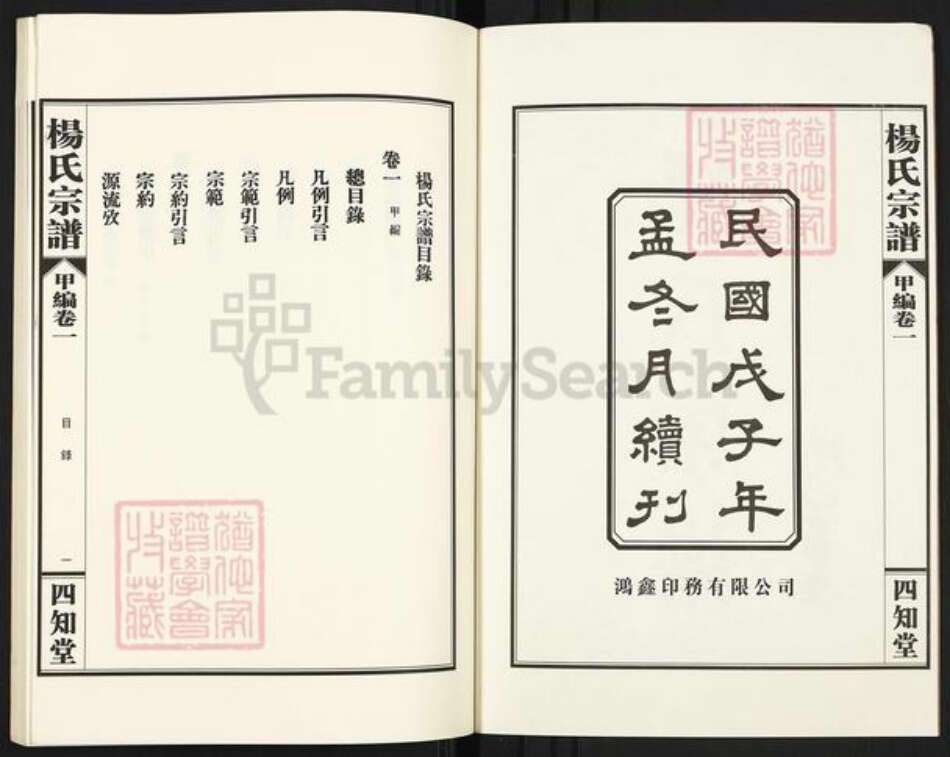 楊氏宗譜
甲編卷一
四知堂
民國戊子年
孟冬月續刊
鴻鑫印務有限公司
楊氏宗譜目錄
卷一 甲編
總目錄
凡例引言
凡例
宗範引言
宗範
宗約引言
宗約
源流攷
楊氏宗譜
甲編卷一
目錄
一
四知堂
FamilySearch